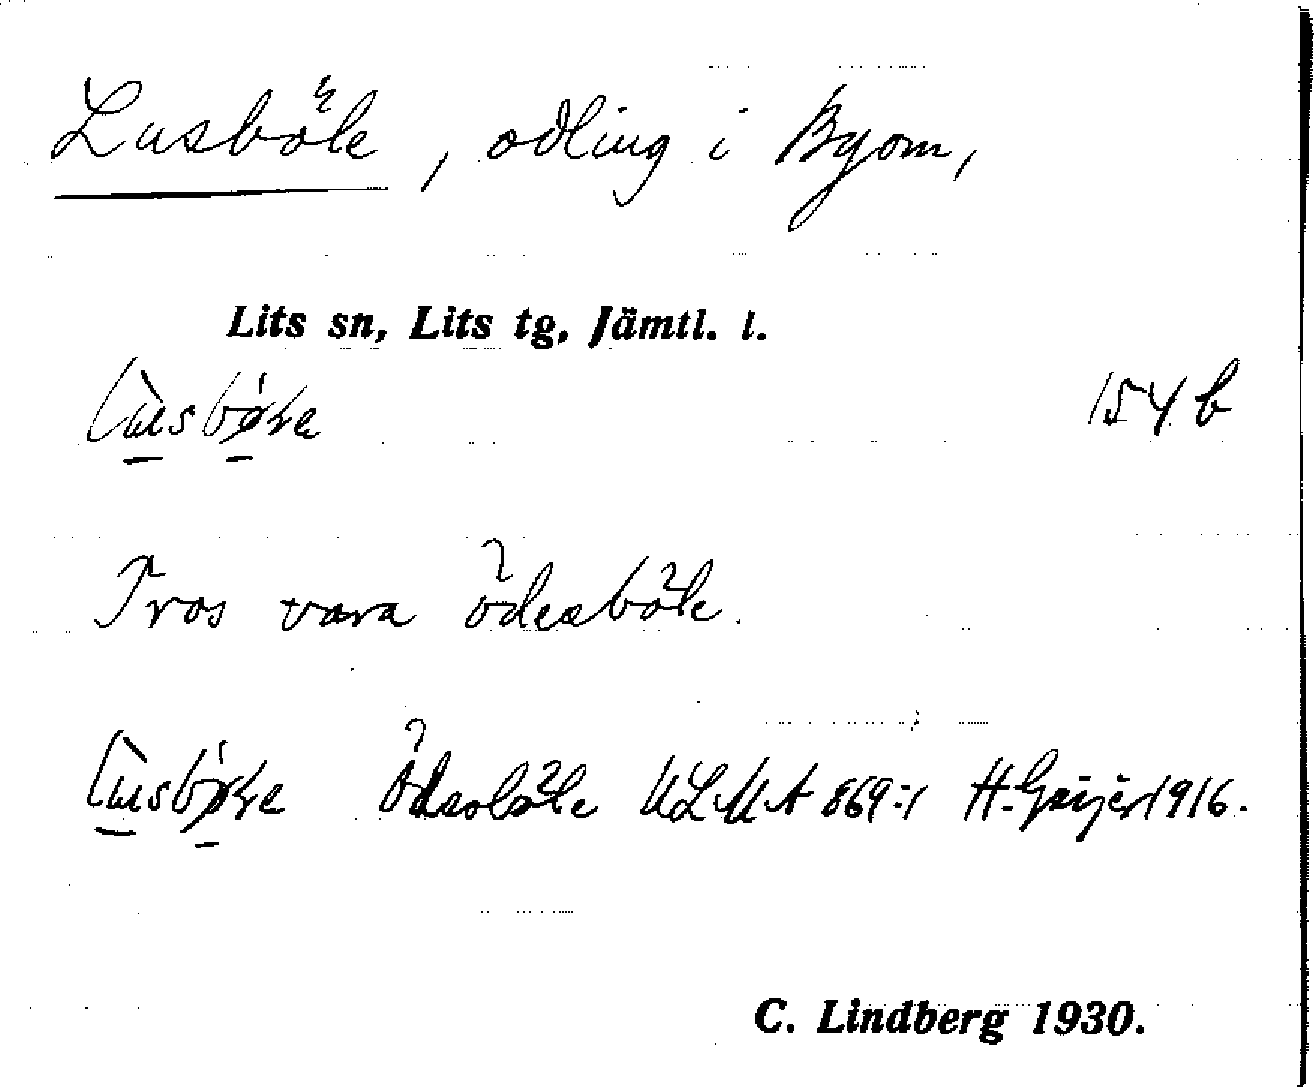 Lusböle, odling i Byom,
Lits sn, Lits tg, Jämtl. l.
154 b
Tros vara ödesböle.
Ödesböle ULMA 869:1 H. Geijer 1916.
C. Lindberg 1930.